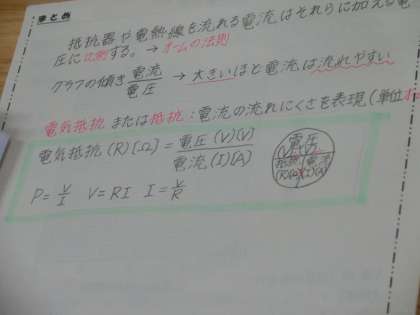 まとめ
抵抗器や電熱線を流れる電流はそれらに加える電
圧に比例する。→オームの法則
グラフの傾き 電流/電圧 → 大きいほど電流は流れやすい
電気抵抗または抵抗：電流の流れにくさを表現(単位
電気抵抗(R)[Ω] = 電圧(V)(V)/電流(I)[A]
電圧
(V)(V)
抵抗 電流
(R)(Ω) (I)(A)
P= V/I V=RI I= V/R